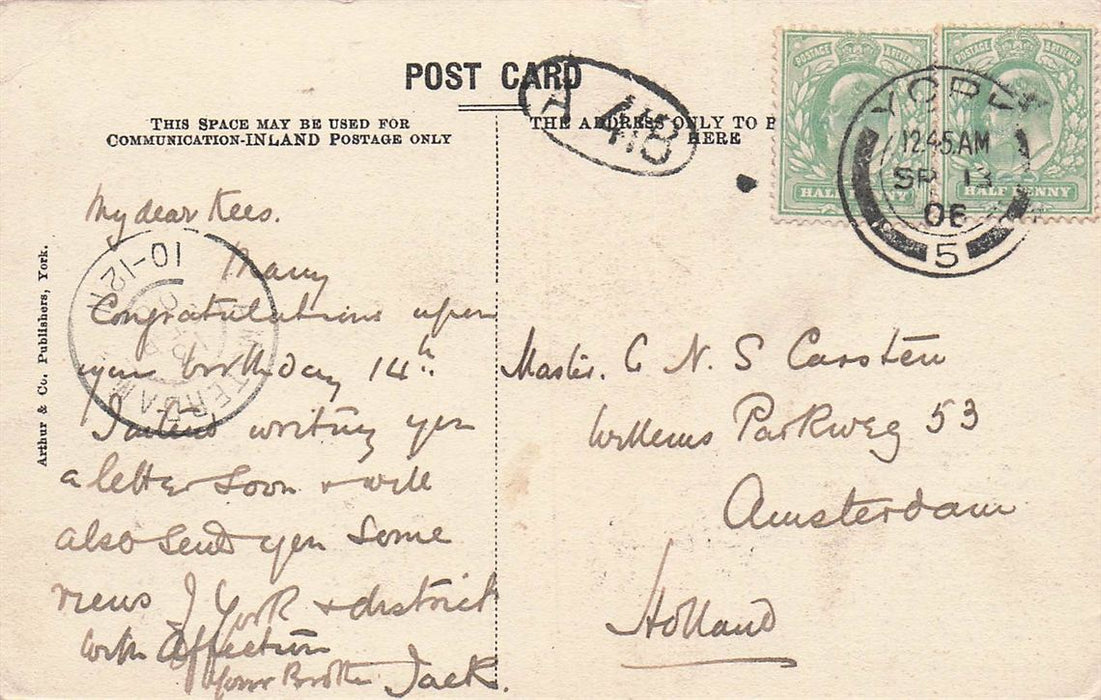 POST CARD
THIS SPACE MAY BE USED FOR
COMMUNICATION-INLAND POSTAGE ONLY
THE ADDRESS ONLY TO B
HERE
A 418
POSTAGE & REVENUE
HALF PENNY
POSTAGE & REVENUE
HALF PENNY
YORK
12.45 AM
SP 13
06
5
Arthur & Co., Publishers, York.
AMSTERDAM
10-12
My dear Kees.
Many
Congratulations upon
your birthday 14th
I intend writing you
a letter soon & will
also send you some
views of York & district
With Affection
Your Brother Jack.
Master. C N S Carsten
Willems Parkweg 53
Amsterdam
Holland